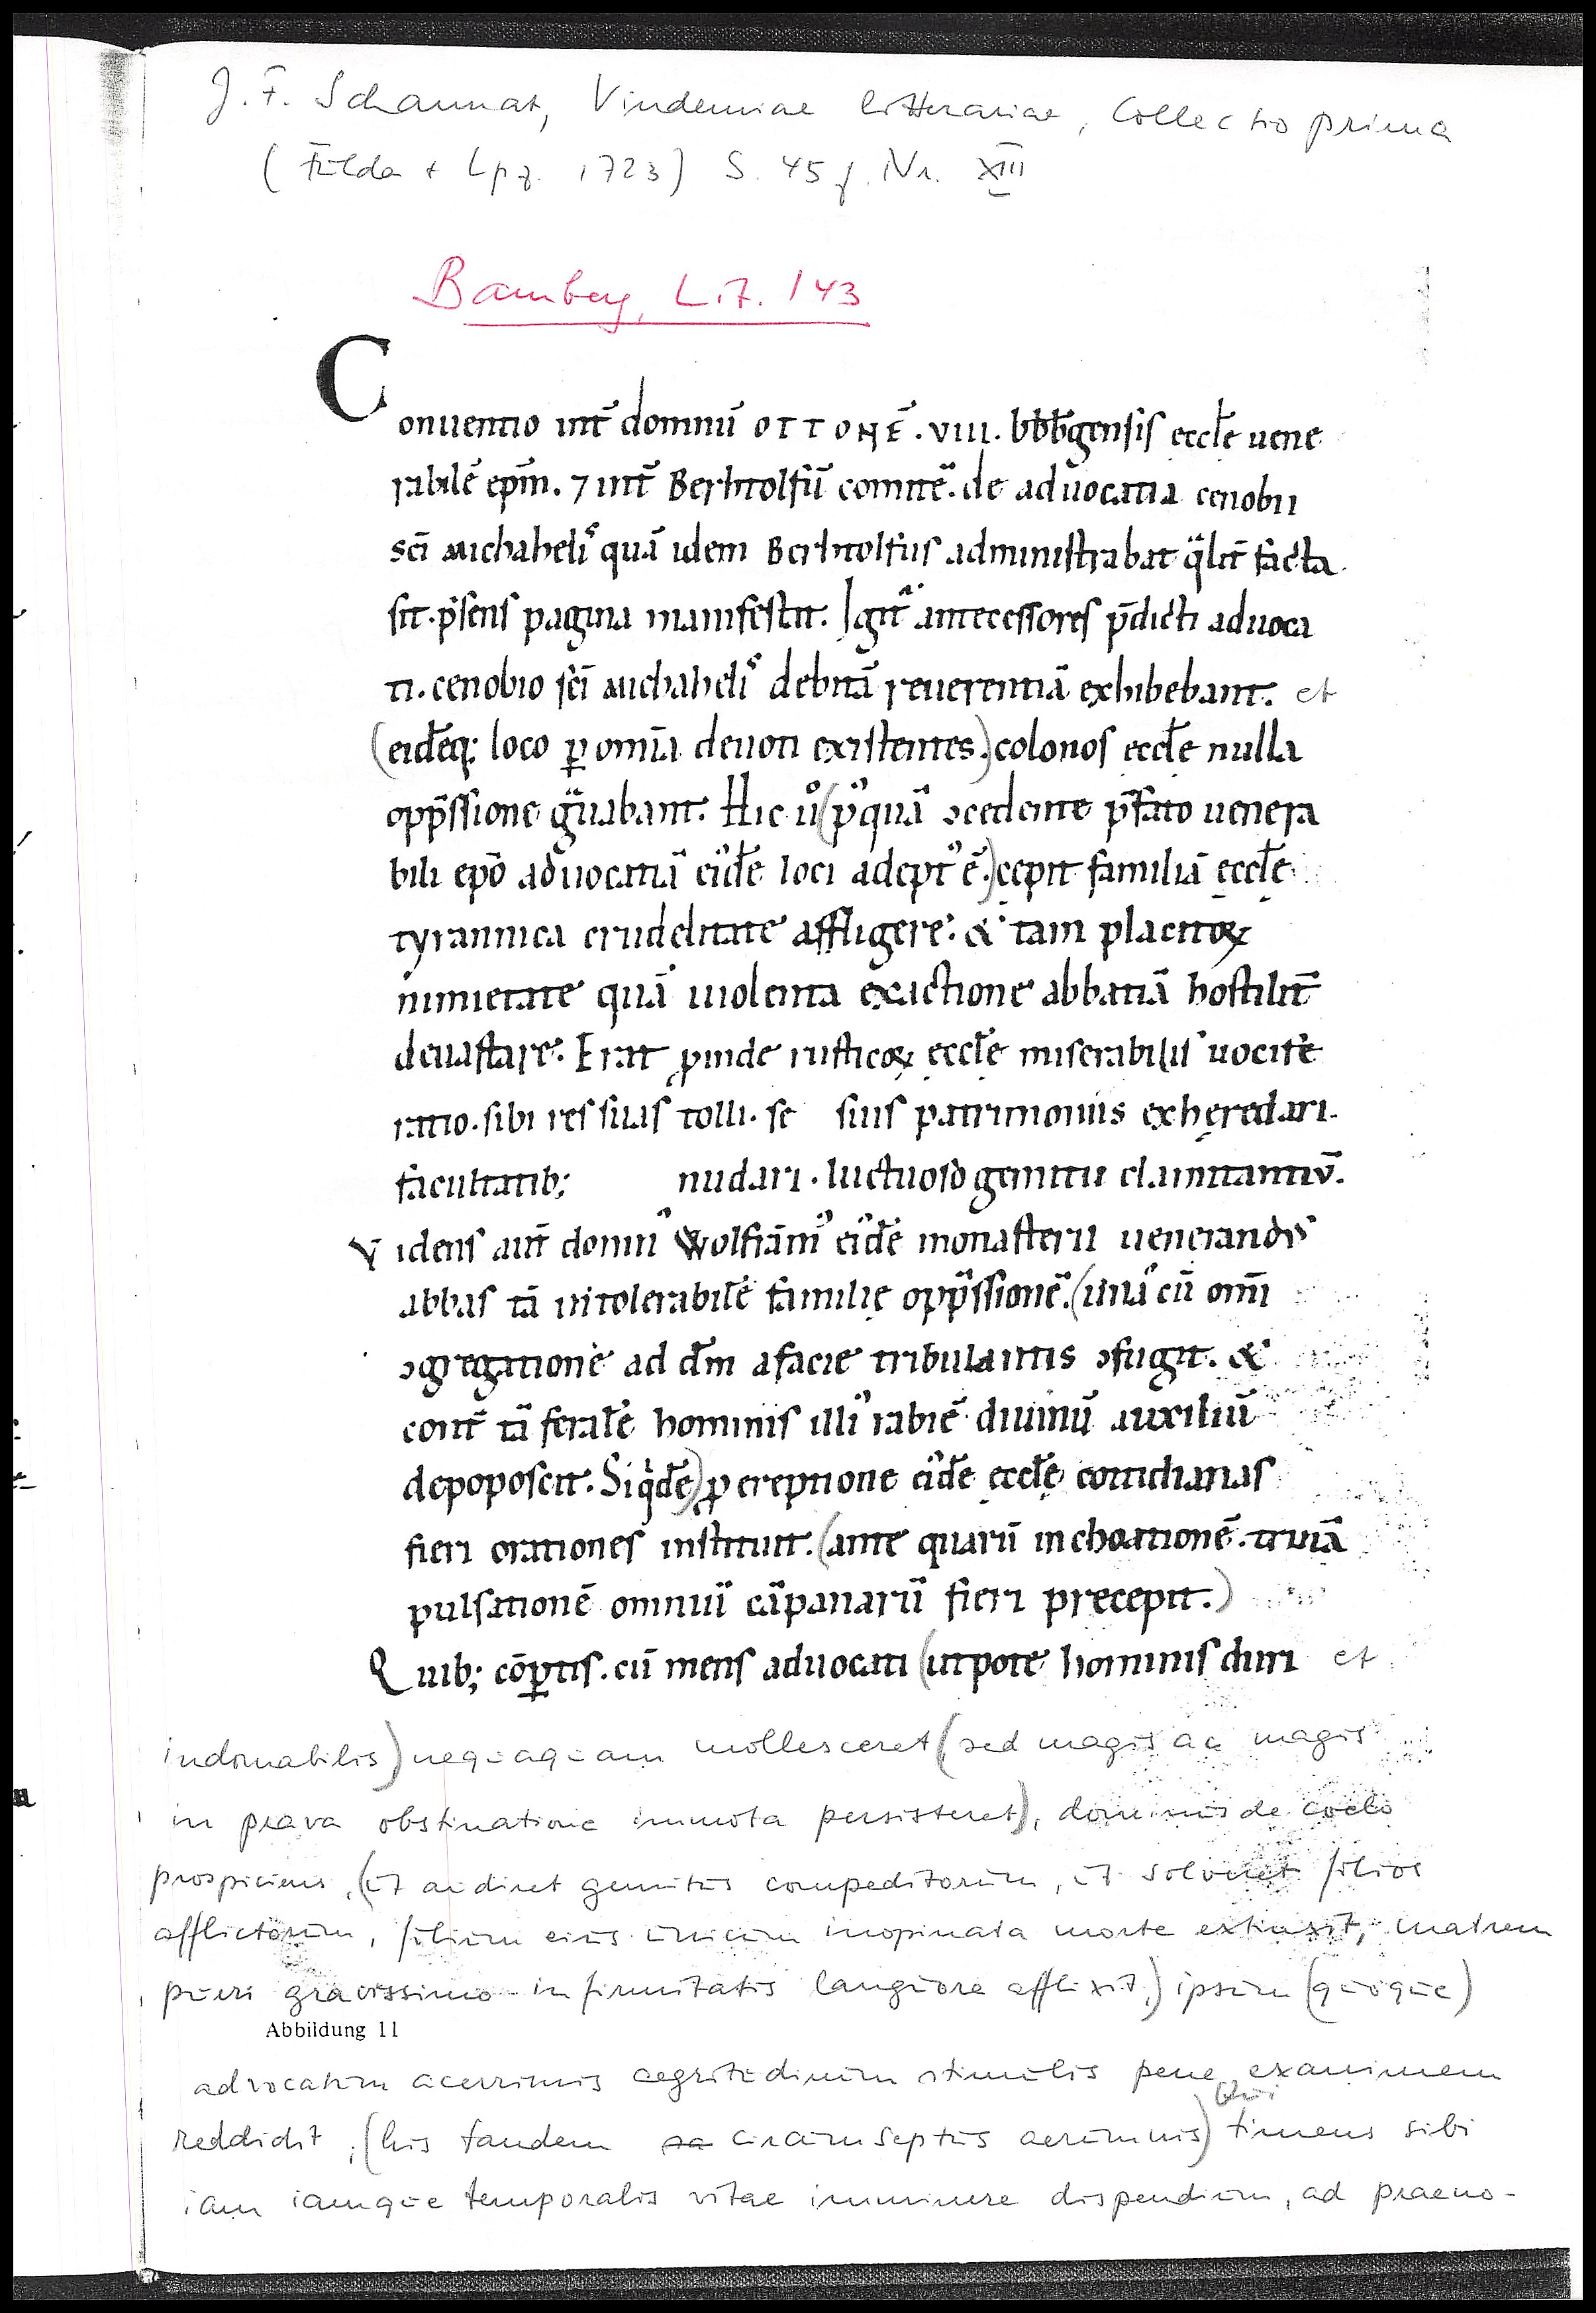 J. F. Schannat, Vindemiae litterariae, Collectio prima
(Fulda + Lpz. 1723) S. 45 f. Nr. XIII
Bamberg, Lit. 143
Conuentio int̄ domnū OTTONĒ . VIII . bbb̄gensis eccłe uene
rabilē ep̄m . ⁊ int̄ Berhtolfū comitē . de aduocatia cenobii
scī michaheli᾽ quā idem Berhtolfus administrabat q̈lit̄ facta
sit . p̄sens pagina manifestat . Igit᾽ antecessores p̄dicti aduoca
ti . cenobio scī michaheli᾽ debitā reuerentiā exhibebant . et
(eidēq; loco ꝑ omīa deuoti existentes .) colonos eccłe nulla
opp̄ssione g̈uabant . Hic u͛o (p᾽quā ɔcedente p̄fato uenera
bili ep̄o aduocatiā ei᾽dē loci adept᾽ ē .) cepit familiā ęccłę
tyrannica crudelitate affligere . & tam placitoꝝ
nimietate quā uiolenta exactione abbatiā hostilit̄
deuastare . Erat ꝓinde rusticoꝝ ęccłę miserabilis uocife
ratio . sibi res suas tolli . se suis patrimoniis exheredari .
facultatib; nudari . luctuoso gemitu clamitantiū .
Videns aut̄ domn᾽ Wolframm᾽ ei᾽dē monasterii uenerand᾽
abbas tā intolerabilē familię opp̄ssionē . (una cū omī
ɔgregatione ad dm̄ a facie tribulantis ɔfugit . &
cont̄ tā feralē hominis illi᾽ rabiē diuinū auxiliū
depoposcit . Siq̇dē) ꝓ ereptione ei᾽dē ęccłę cottidianas
fieri orationes instituit . (ante quarū inchoationē . trinā
pulsationē omniū cāpanarū fieri precepit .)
Quib; cōꝑtis . cū mens aduocati (utpote hominis duri et
indomabilis) nequaquam mollesceret (sed magis ac magis
in prava obstinatione immota persisteret), dominus de coelo
prospiciens, (ut audiret gemitus compeditorum, ut solveret filios
afflictorum, filium eius unicum inopinata morte extinxit, matrem
pueri gravissimo infirmitatis languore afflixit,) ipsum (quoque)
Abbildung 11
advocatum acerrimis aegritudinum stimulis pene exanimem
reddidit, (his tandem circumseptus aerumnis) Qui timens sibi
iam iamque temporalis vitae imminere dispendium, ad praeno-